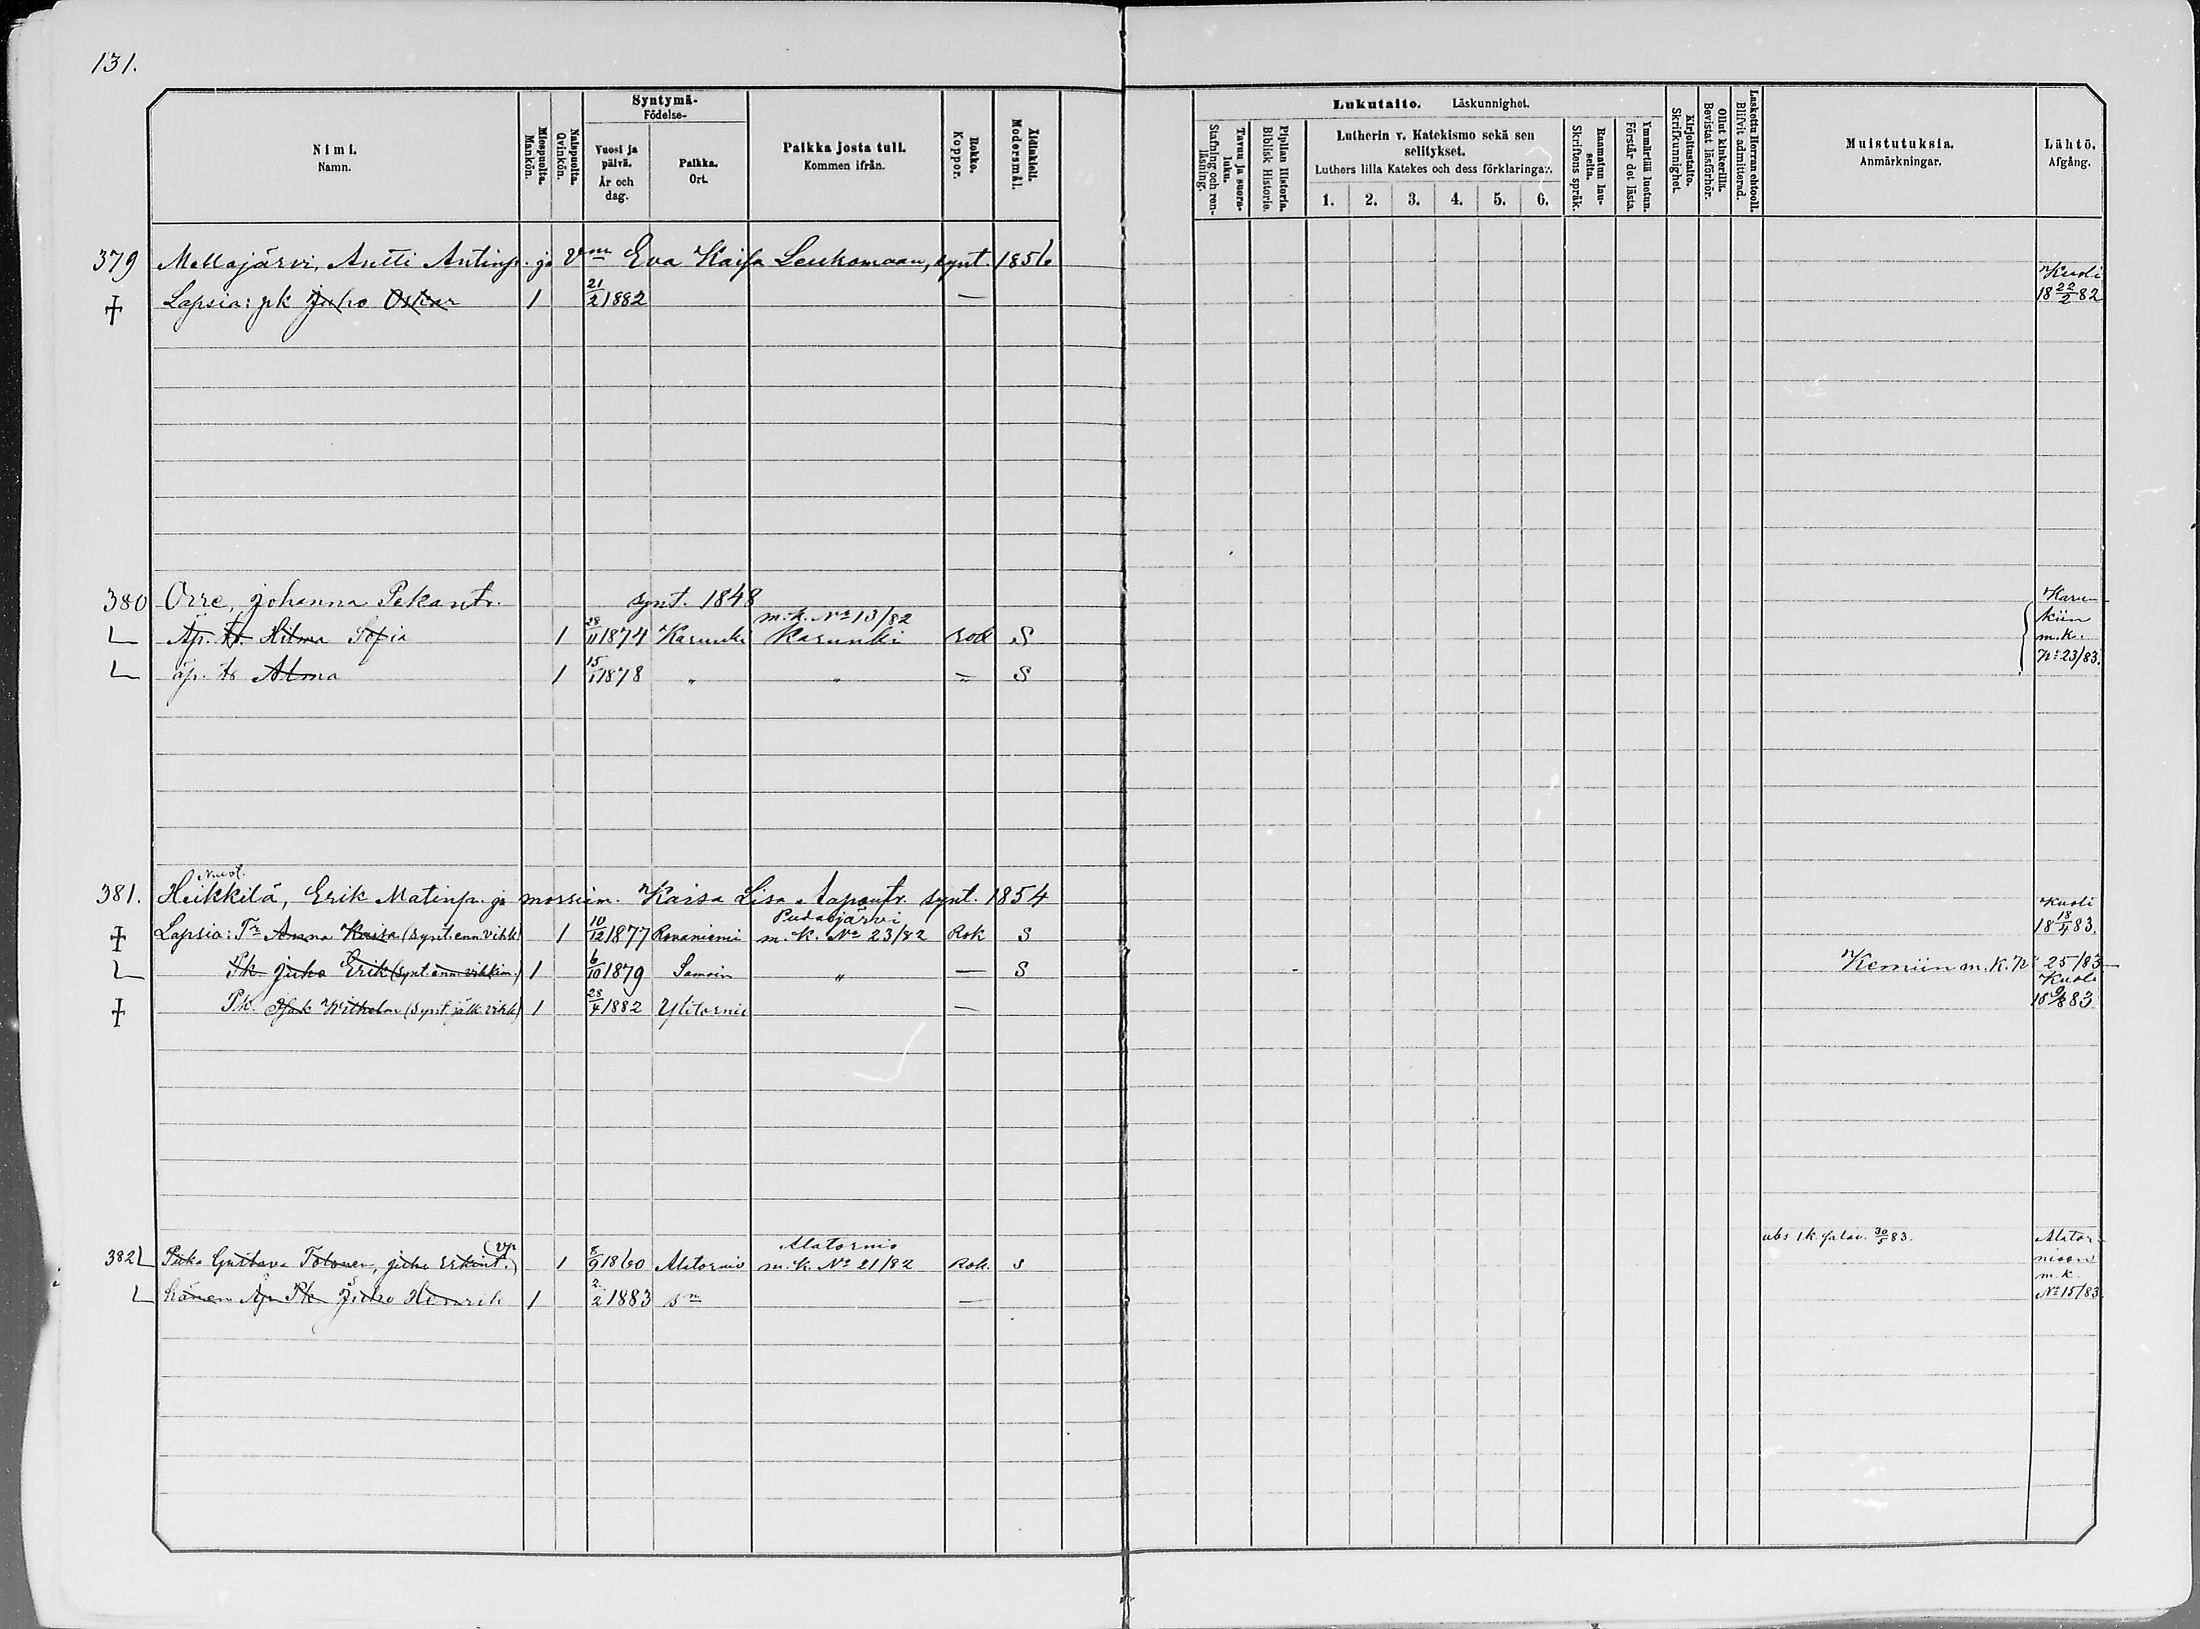 131.
Nimi.
Namn.
Miespuolta.
Mankön.
Naispuolta.
Qvinkön.
Syntymä-
Födelse-
Vuosi ja päivä.
År och dag.
Paikka.
Ort.
Paikka josta tuli.
Kommen ifrån.
Rokko.
Koppor.
Äidinkieli.
Modersmål.
Lukutaito. Läskunnighet.
Tavuu ja suora-luku.
Stafning och ren-läsning.
Piplian Historia.
Biblisk Historie.
Lutherin v. Katekismo sekä sen
selitykset.
Luthers lilla Katekes och dess förklaringar.
1. 2. 3. 4. 5. 6.
Raamatun lau-seita.
Skriftens språk.
Ymmärtää luetun.
Förstår det lästa.
Kirjoitustaito.
Skrifkunnighet.
Ollut kinkerillä.
Bevistat läsförhör.
Laskettu Herran ehtooll.
Blifvit admitterad.
Muistutuksia.
Anmärkningar.
Lähtö.
Afgång.
379 Mellajärvi, Antti Antinp. ja vm Eva Kaisa Leukomaan, synt. 1856
Lapsia: pk Juho Oskar 1 21/2 1882 — Kuoli 18 22/2 82
380 Orre, Johanna Pekantr. synt. 1848
m.k. No 13/82
Äp. tr. Hilma Sofia 1 28/11 1874 Karunki Karunki rok S
Karun-
kiin
m.k.
No 23/83.
äp. tr Alma 1 15/1 1878 " " " S
381. Heikkilä, Erik Matinp. ja morsiam. Kaisa Lisa Aapontr. synt. 1854
Pudasjärvi
Lapsia: Tr Anna Kaisa (synt. enn vihk) 1 10/12 1877 Rovaniemi m.k. No 23/82 Rok S Kuoli 18 18/4 83.
Pk Juho Erik (synt enn vihkim.) 1 6/10 1879 Samoin " — S Kemiin m.k. No 25/83
Pk. Isak Wilhelm (synt jälk vihk) 1 28/4 1882 Ylitornio — Kuoli 18 9/8 83
Alatornio
382 Piika Gustava Tolonen, Juho Erkint. (vp) 1 8/9 1860 Alatornio m.k. No 21/82 Rok. S
abs 1.k. salav. 30/5 83.
Alator-
nioon
m.k.
No 15/83.
hänen Äp Pk Juho Henrik 1 2/2 1883 sm —